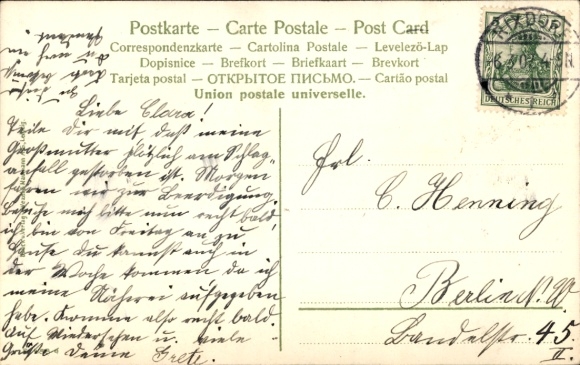 Postkarte – Carte Postale – Post Card
Correspondenzkarte – Cartolina Postale – Levelező-Lap
Dopisnice – Brefkort – Briefkaart – Brevkort
Tarjeta postal – ОТКРЫТОЕ ПИСЬМО. – Cartão postal
Union postale universelle.
RIXDORF
DEUTSCHES REICH
Liebe Clara!
Teile Dir mit daß meine
Großmutter plötzlich am Schlag-
anfall gestorben ist. Morgen
fahren wir zur Beerdigung.
Besuche mich bitte nun recht bald
ich bin von Freitag an zu
Hause du kannst auch in
der Woche kommen da ich
meine Näherei aufgegeben
habe. Komme also recht bald.
Auf Wiedersehen u. viele
Grüße Deine Grete.
Frl.
C. Henning
Berlin N.W.
Bandelstr. 45.
II.